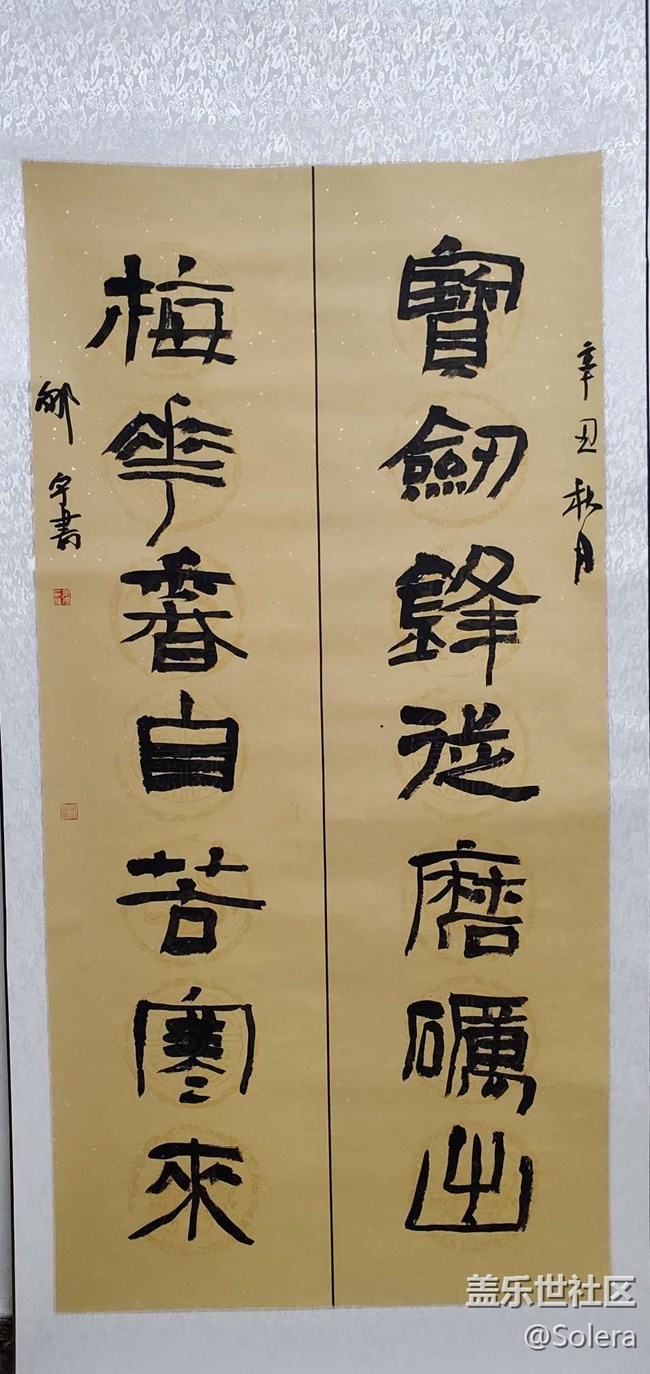 辛丑秋月
寶劍鋒從磨礪出
梅花香自苦寒來
宇書
盖乐世社区
@Solera